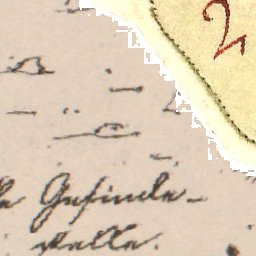 2
Gesinde-
stelle.